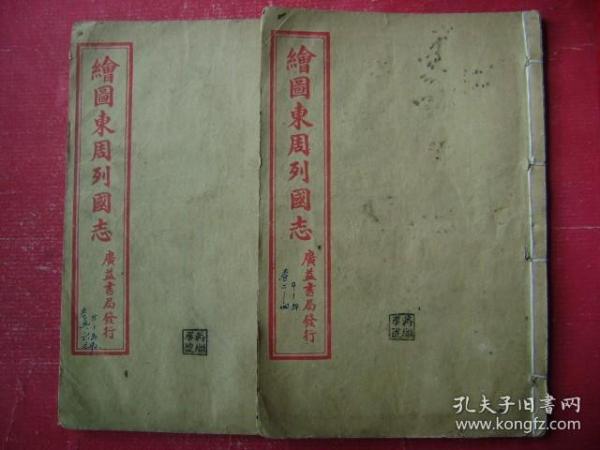 繪圖東周列國志
廣益書局發行
繪圖東周列國志
廣益書局發行
卷二－四
孔夫子旧书网
www.kongfz.com